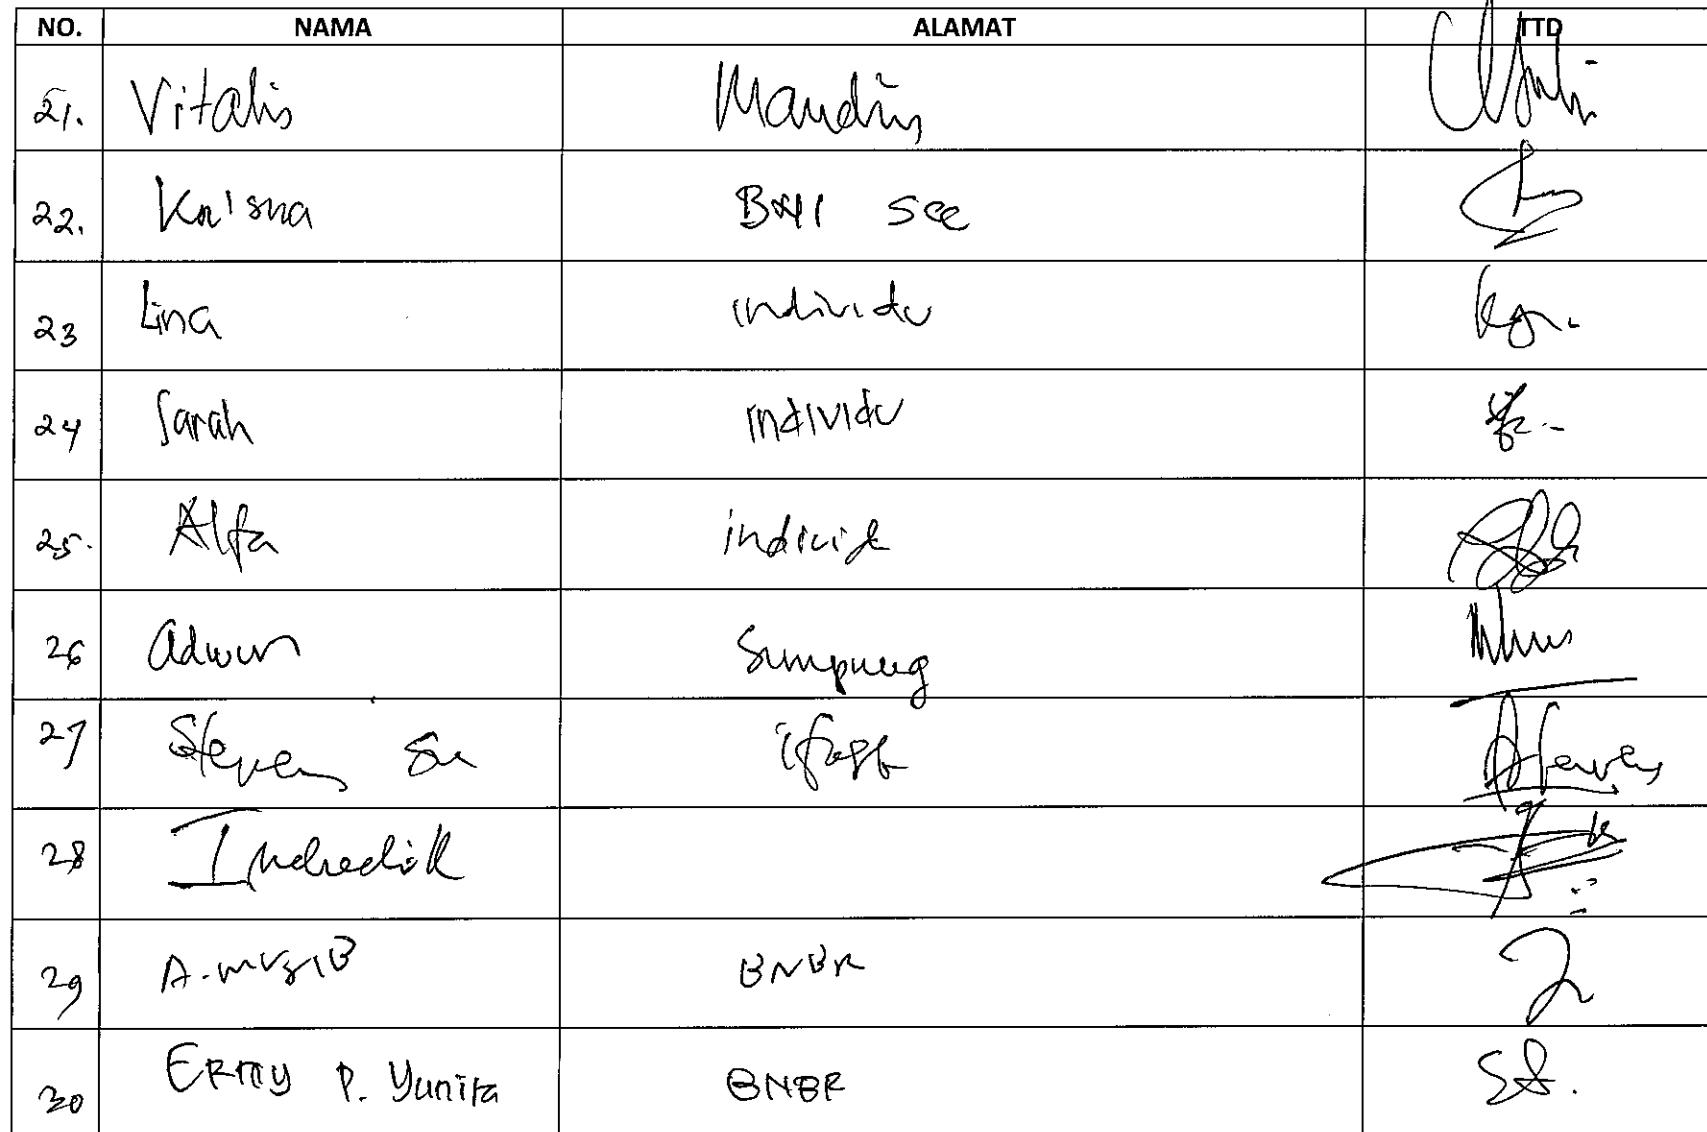 NO. NAMA ALAMAT TTD
21. Vitalis Mandiri
22. Krisna BNI Sec
23 Lina individu
24 Sarah individu
25. Alfa individu
26 Adwin
27 Steven Su ifast Steven
28
29 A. MUZIB BNBR
30 ERITY P. Yunita BNBR